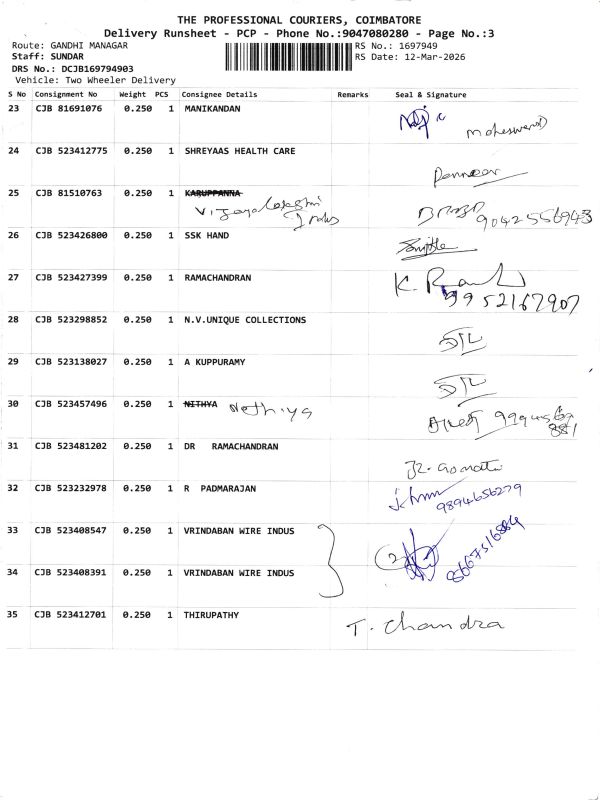 THE PROFESSIONAL COURIERS, COIMBATORE
Delivery Runsheet - PCP - Phone No.:9047080280 - Page No.:3
Route: GANDHI MANAGAR RS No.: 1697949
Staff: SUNDAR RS Date: 12-Mar-2026
DRS No.: DCJB169794903
Vehicle: Two Wheeler Delivery
S No Consignment No Weight PCS Consignee Details Remarks Seal & Signature
23 CJB 81691076 0.250 1 MANIKANDAN
24 CJB 523412775 0.250 1 SHREYAAS HEALTH CARE
25 CJB 81510763 0.250 1 KARUPPANNA
9042556943
26 CJB 523426800 0.250 1 SSK HAND
27 CJB 523427399 0.250 1 RAMACHANDRAN
9952167907
28 CJB 523298852 0.250 1 N.V.UNIQUE COLLECTIONS
29 CJB 523138027 0.250 1 A KUPPURAMY
30 CJB 523457496 0.250 1 NITHYA Nethiya
31 CJB 523481202 0.250 1 DR RAMACHANDRAN
32 CJB 523232978 0.250 1 R PADMARAJAN
9894656279
33 CJB 523408547 0.250 1 VRINDABAN WIRE INDUS
34 CJB 523408391 0.250 1 VRINDABAN WIRE INDUS
35 CJB 523412701 0.250 1 THIRUPATHY
T. Chandra